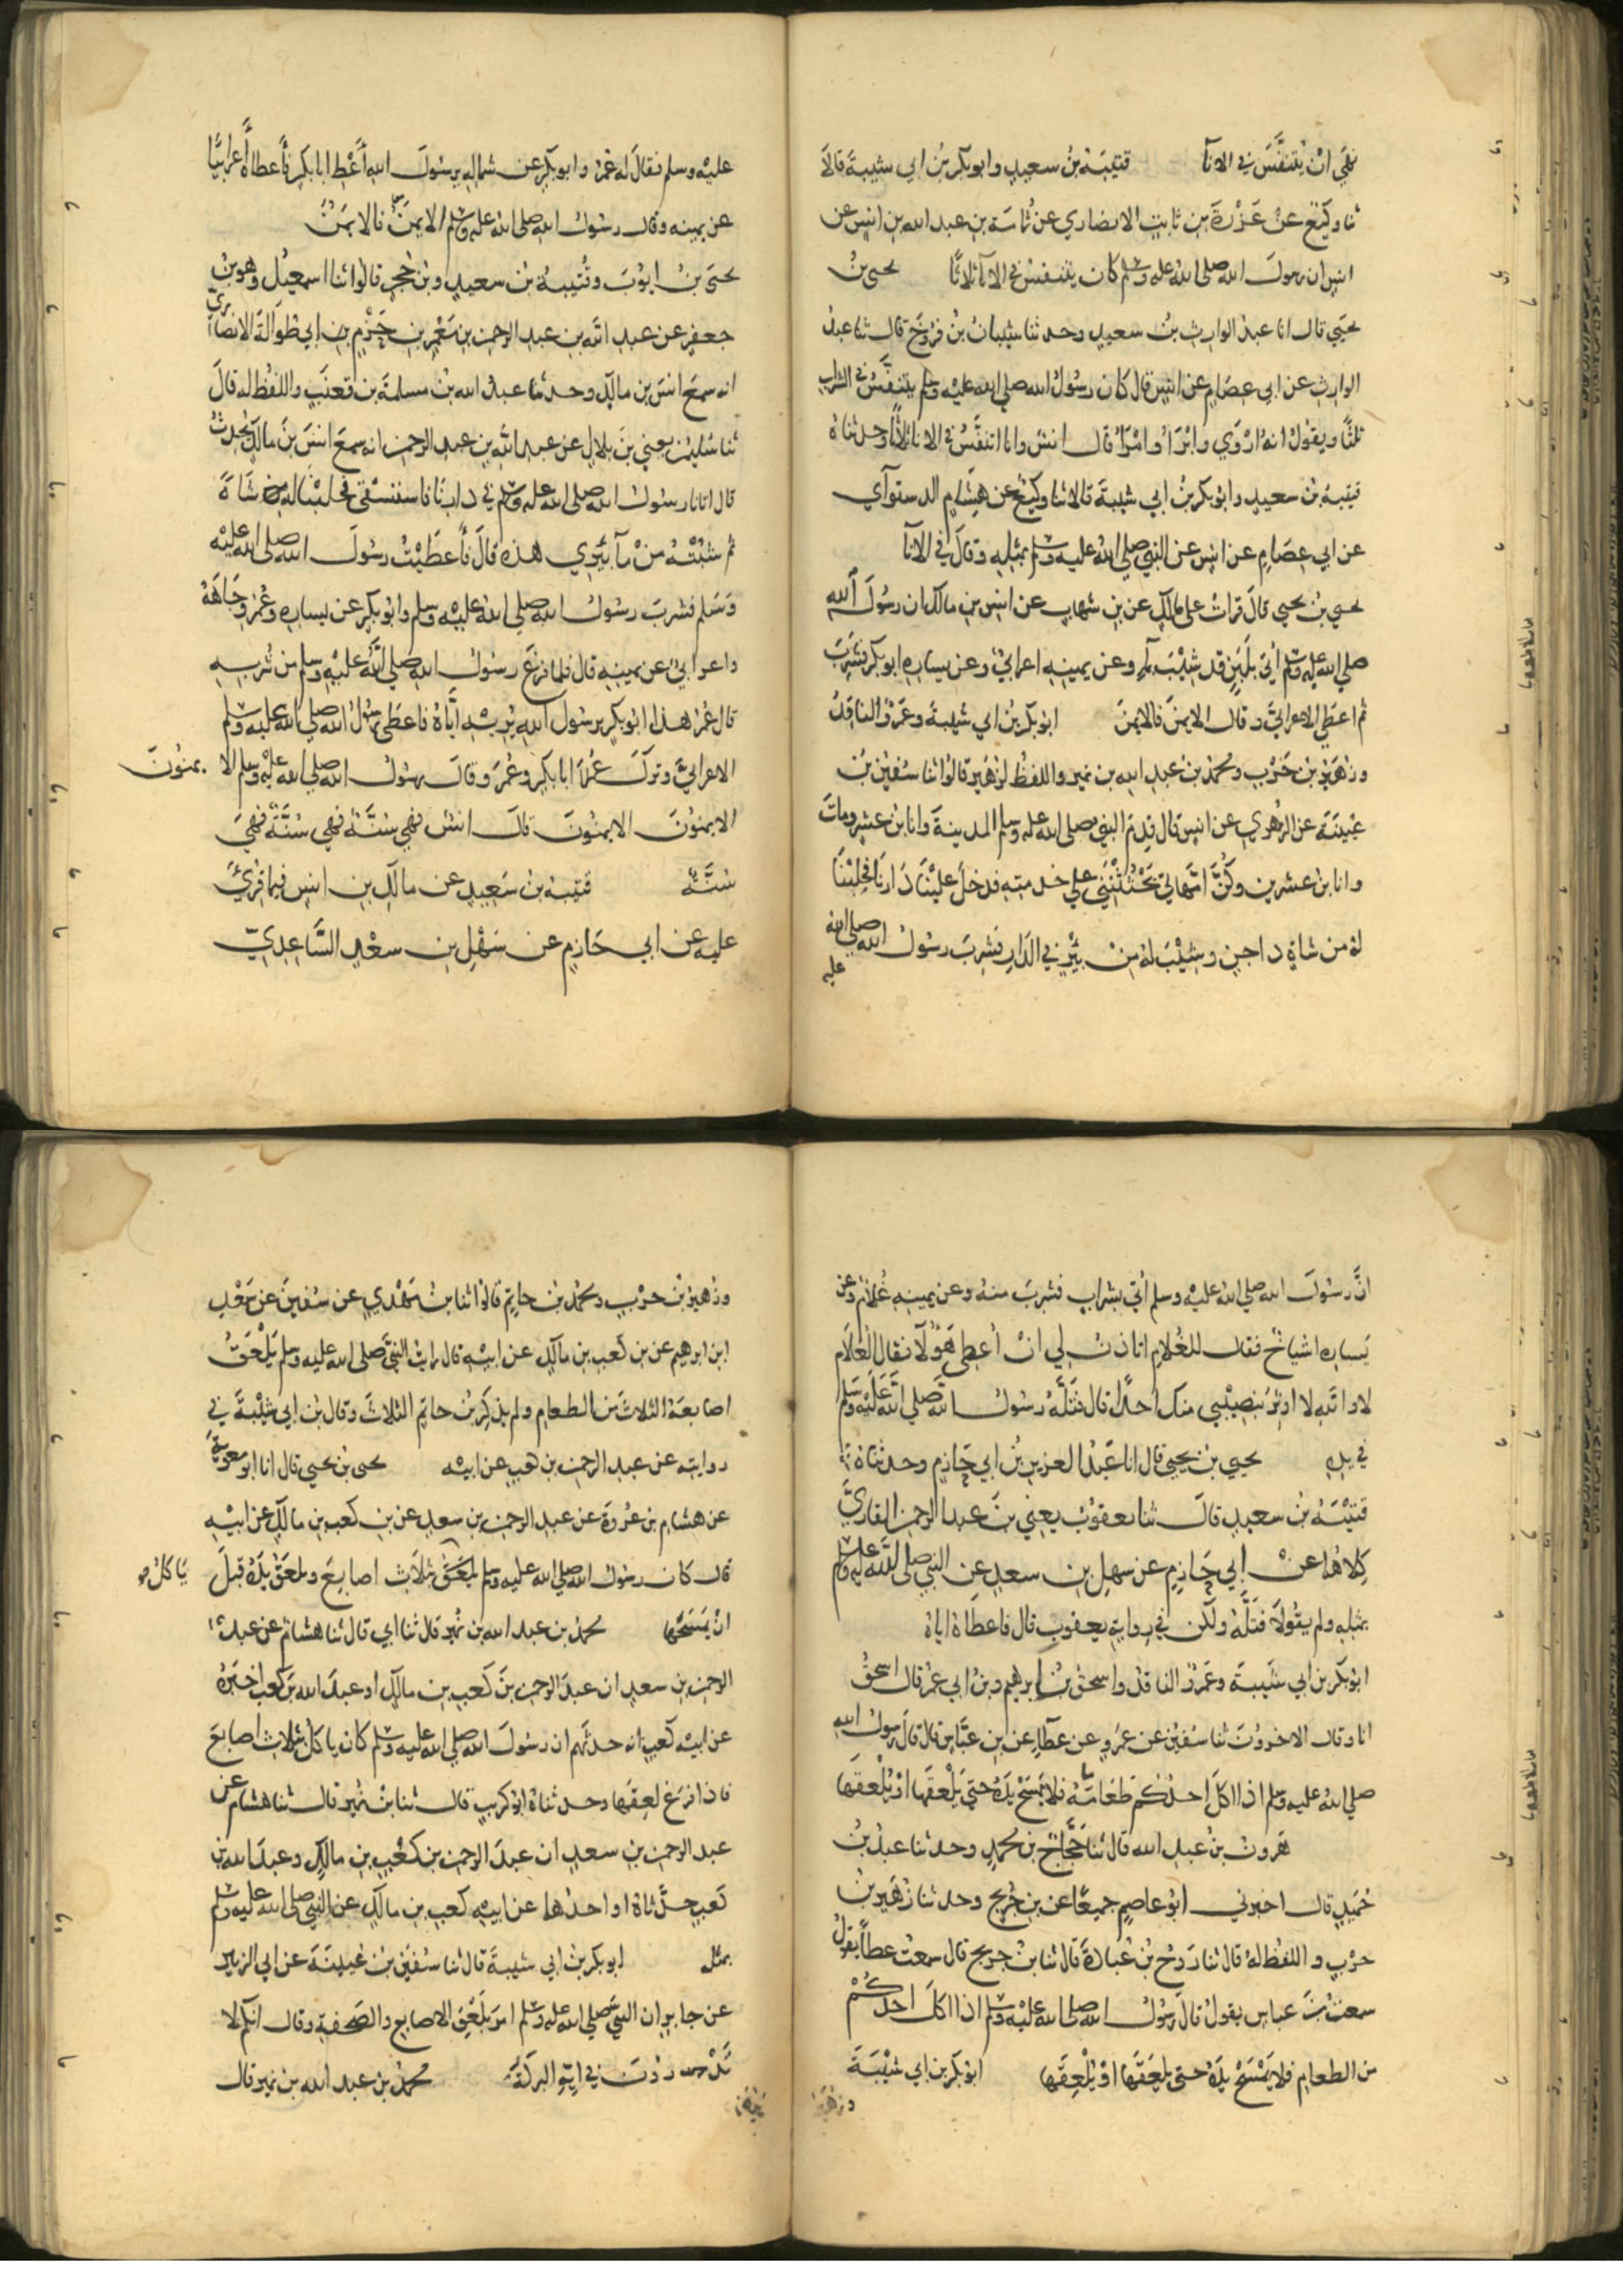 نهي ان يُتنفَّسَ في الاناء قتيبَة بنُ سعيدٍ وابو بكر بنُ ابي شيبةَ قالا
ثنا وكيعٌ عن عَزْرَةَ بنِ ثابتٍ الانصاري عن ثمامَة بنِ عبد الله بنِ انسٍ عن
انسٍ ان رسولَ الله صلى الله عليه وسلم كان يتنفسُ في الاناء ثلاثًا يحيى بنُ
يحيَي قال انا عبدُ الوارث بنُ سعيدٍ وحدثنا شيبانُ بنُ فرُّوخَ قال ثنا عبدُ
الوارثِ عن ابي عصَامٍ عن انسٍ قال كان رسولُ الله صلى الله عليه وسلم يتنفَّسُ في الشراب
ثلثًا ويقولُ انهُ ارْوَي وابْرَاُ وامْرَاُ قال انسٌ وانا اتنفَّسُ في الاناء ثلاثًا وحدثناهُ
قتيبة بنُ سعيدٍ وابو بكر بنُ ابي شيبةَ قالا ثنا وكيعٌ عن هشامٍ الدستوآي
عن ابي عِصَامٍ عن انسٍ عن النبي صلي الله عليه وسلم بمثلِهِ وقالَ في الاناء
يحيي بنُ يحيي قالَ قراتُ على مالكٍ عن بنِ شهابٍ عن انسِ بنِ مالكٍ ان رسُولَ الله
صلي الله عليه وسلم اُتيَ بلَبَنٍ قد شِيْبَ بماءٍ وعن يمينِهِ اعرابيٌ وعن يسارِهِ ابو بكرٍ فشرِبَ
ثم اعطَي الاعرابيَّ وقال الايمنَ فالايمنَ ابو بكر بنُ ابي شيبةَ وعمرٌو الناقدُ
وزهَيرُ بنُ حَرْبٍ ومحمدُ بنُ عبدِ الله بنِ نميرٍ واللفظُ لزهيرٍ قالوا ثنا سفينُ بنُ
عُيينَةَ عن الزهُري عن انسٍ قال قدِمَ النبي صلى الله عليه وسلم المدينةَ وانا بنُ عشرٍ وماتَ
وانا بنُ عشرين وكُنَّ امَّهاتي يَحْثُثْنَني علي خدمتِهِ فدخلَ علَيْنَا دَارنَا فحَلَبْنَا
لهُ من شاةٍ داجنٍ وشِيْبَ لهُ مِنْ بئرٍ في الدارِ فشرِبَ رسُولُ الله صلى الله
عليه
عليه وسلم فقالَ له عُمَرُ وابو بكرٍ عن شمالِهِ يرسُولَ اللهِ اَعْطِ ابا بكرٍ فاَعطاهُ اَعرابيًّا
عن يمينهِ وقال رسُولُ اللهِ صلى الله عليه وسلم الايمنَ فالايمَنُ
يحيَى بنُ ايوُّبَ وقُتيبةُ بنُ سعيدٍ وبنُ حُجرٍ قالوا ثنا اسمعيلُ وهو بنُ
جعفرٍ عن عبدِ الله بنِ عبدِ الرحمنِ بنِ مَعْمَرِ بنِ حَزْمٍ بنِ ابي طُوالَةَ الانصاري
انه سمعَ انسَ بن مالكٍ وحدثنا عبدُ الله بنُ مسلمةَ بنِ قعنَبٍ واللفظُ له قالَ
ثنا سُليمنُ يعني بنَ بلالٍ عن عبدِ اللهِ بنِ عبدِ الرحمنِ انه سمعَ انسَ بنَ مالكٍ يحُدثُ
قال اتانا رسُولُ الله صلى الله عليه وسلم في دارِنَا فاستَسْقَى فحلبْنَا له شاةً
ثم شُبْتُهُ مِنْ مآءِ بئرِي هذه قالَ فاَعطَيْتُ رسُولَ الله صلى الله عليه
وَسَلم فشربَ رسُولُ اللهِ صلى الله عليه وسلم وابُو بكرٍ عن يسارِهِ وعُمرُ وجَاهَهُ
واعرابيٌ عن يمينِهِ قال فلما فرغَ رسُولُ اللهِ صلى اللهُ عليه وسلم من شُربِهِ
قال عُمَرُ هذا ابُو بكرٍ يرسُول اللهِ يُرِيْهِ اِيَّاهُ فاعطَى رسُولُ اللهِ صلى الله عليه وسلم
الاعرابيَّ وتركَ ابا بكرٍ وعُمَرَ وقالَ رسُولُ اللهِ صلى الله عليه وسلم الا يمنُونَ
الايمنُونَ الايمنُونَ قالَ انسٌ فهي سُنَّةٌ فهي سُنَّةٌ فهي
سُنَّةٌ قتيبة بنُ سَعيدٍ عن مالكِ بنِ انسٍ فيما قرئَ
عليه عن ابي حَازِمٍ عن سَهْلِ بنِ سعْدٍ السَّاعِدِيّ
انَّ رسُولَ الله صلى الله عليه وسلم اُتي بشرابٍ فشربَ منهُ وعن يمينِهِ غُلامٌ وعن
يَسارِه اشياخٌ فقال للغُلامِ اتاذنُ لي انْ اُعطِي هَؤُلآء فقال الغُلامُ
لا والله لا اوثِرُ بنصِيْبي منكَ احدًا قال فتَلَّهُ رسُولُ الله صلى الله عليه وسلم
في يدِهِ يحيي بنُ يحيي قال انا عَبدُ العزيزِ بنُ ابي حَازِمٍ وحدثناهُ
قتيْبَةُ بنُ سعيدٍ قالَ ثنا يعقوُبُ يعني بنَ عبدِ الرحمنِ القاريَّ
كِلاهُما عنْ ابي حَازِمٍ عن سهلِ بنِ سعدٍ عن النبي صلى الله عليه وسلم
بمثلِهِ ولم يقُولا فتَلَّهُ ولكن في روايةِ يعقوبَ قال فاعطاهُ اياهُ
ابو بكر بن ابي شَيبةَ وعَمرٌو الناقدُ واسحقُ بنُ ابرهيمَ وبنُ ابي عمُرَ قال اسحقُ
انا وقال الاخروُنَ ثنا سُفينُ عن عمرٍو عن عطآءٍ عن بنِ عبَّاسٍ قال قالَ رسولُ اللهِ
صلي الله عليه وسلم اذا اكلَ احدُكُم طعَامًا فلا يمسَحْ يدَهُ حتي يَلْعقَها اوْ يُلْعِقَها
هَرونُ بنُ عبدِ الله قال ثنا حَجَّاجُ بن محمدٍ وحدثنا عبدُ بنُ
حُمَيدٍ قال اخبرني ابُو عاصمٍ جميعًا عن بنِ جُرَيجٍ وحدثنا زُهَيرُ بنُ
حرْبٍ واللفظ لهُ قال ثنا رَوحُ بنُ عُبادةَ قال ثنا بنُ جريجٍ قال سمعتُ عطآءً يقولُ
سمعتُ بنَ عباسٍ يقولُ قالَ رسُولُ الله صلى الله عليه وسلم اذا اكلَ احدُكُمْ
من الطعامِ فلا يَمْسَحْ يدَهُ حتى يلعَقَها اوْ يُلْعِقَها ابو بكر بن ابي شَيْبَةَ
وزهَيرُ
وزُهَيرُ بنُ حرْبٍ ومحمدُ بنُ حاتِمٍ قالوا ثنا بنُ مَهْدِيٍ عن سُفينَ عن سَعْدِ
ابنِ ابرهيم عن بنِ كَعبِ بنِ مالكٍ عن ابيهِ قال رايتُ النبيَّ صلى الله عليه وسلم يَلْعَقُ
اصابعَهُ الثلاثَ من الطعامِ ولم يذكرِ بنُ حاتمٍ الثلاثَ وقال بنُ ابي شَيْبةَ في
روايتِهِ عن عبدِ الرحمنِ بنِ كعبٍ عن ابيهِ يحيى بنُ يحيي قال انا ابو معويةَ
عن هشامِ بنِ عُروةَ عن عبدِ الرحمنِ بنِ سعدٍ عن بنِ كعبِ بنِ مالكٍ عن ابيْهِ
قال كان رسُولُ الله صلي الله عليه وسلم يلعَقُ بثلاثِ اصابعَ ويلعَقُ يدَهُ قبلَ يَاكلُ
انْ يَمسَحَها محمدُ بنُ عبدِ الله بنِ نُميرٍ قال ثنا ابي قال ثنا هشامٌ عن عبدِ
الرحمنِ بنِ سعدٍ ان عبدَ الرحمنِ بنَ كَعبِ بنِ مالكٍ او عبدَ الله بنَ كعبٍ اخبَرَهُ
عن ابيه كَعبٍ انه حدثَهُم ان رسُولَ اللهِ صلي الله عليه وسلم كان ياكلُ بثلاثِ اصابعَ
فاذا فرَغَ لعِقَها وحدثناهُ ابُو كريبٍ قال ثنا بنُ نُميرٍ قال ثنا هشامٌ عن
عبدِ الرحمن بنِ سعدٍ ان عبدَ الرحمنِ بنَ كَعْبِ بنِ مالكٍ وعبدَ الله بنَ
كَعبٍ حدَّثاهُ او احدُهما عن ابيهِ كعبِ بنِ مالكٍ عن النبي صلى الله عليه وسلم
بمثلِهِ ابو بكر بنُ ابي شيبةَ قال ثنا سُفينُ بنُ عُيينَةَ عن ابي الزبيرِ
عن جابرٍ ان النبيَّ صلي الله عليه وسلم امرَ بلعْقِ الاصابعِ والصَّحفةِ وقال انكم لا
تَدْرُونَ في ايِّهِ البركَةُ محمدُ بنُ عبدِ الله بنِ نميرٍ قال